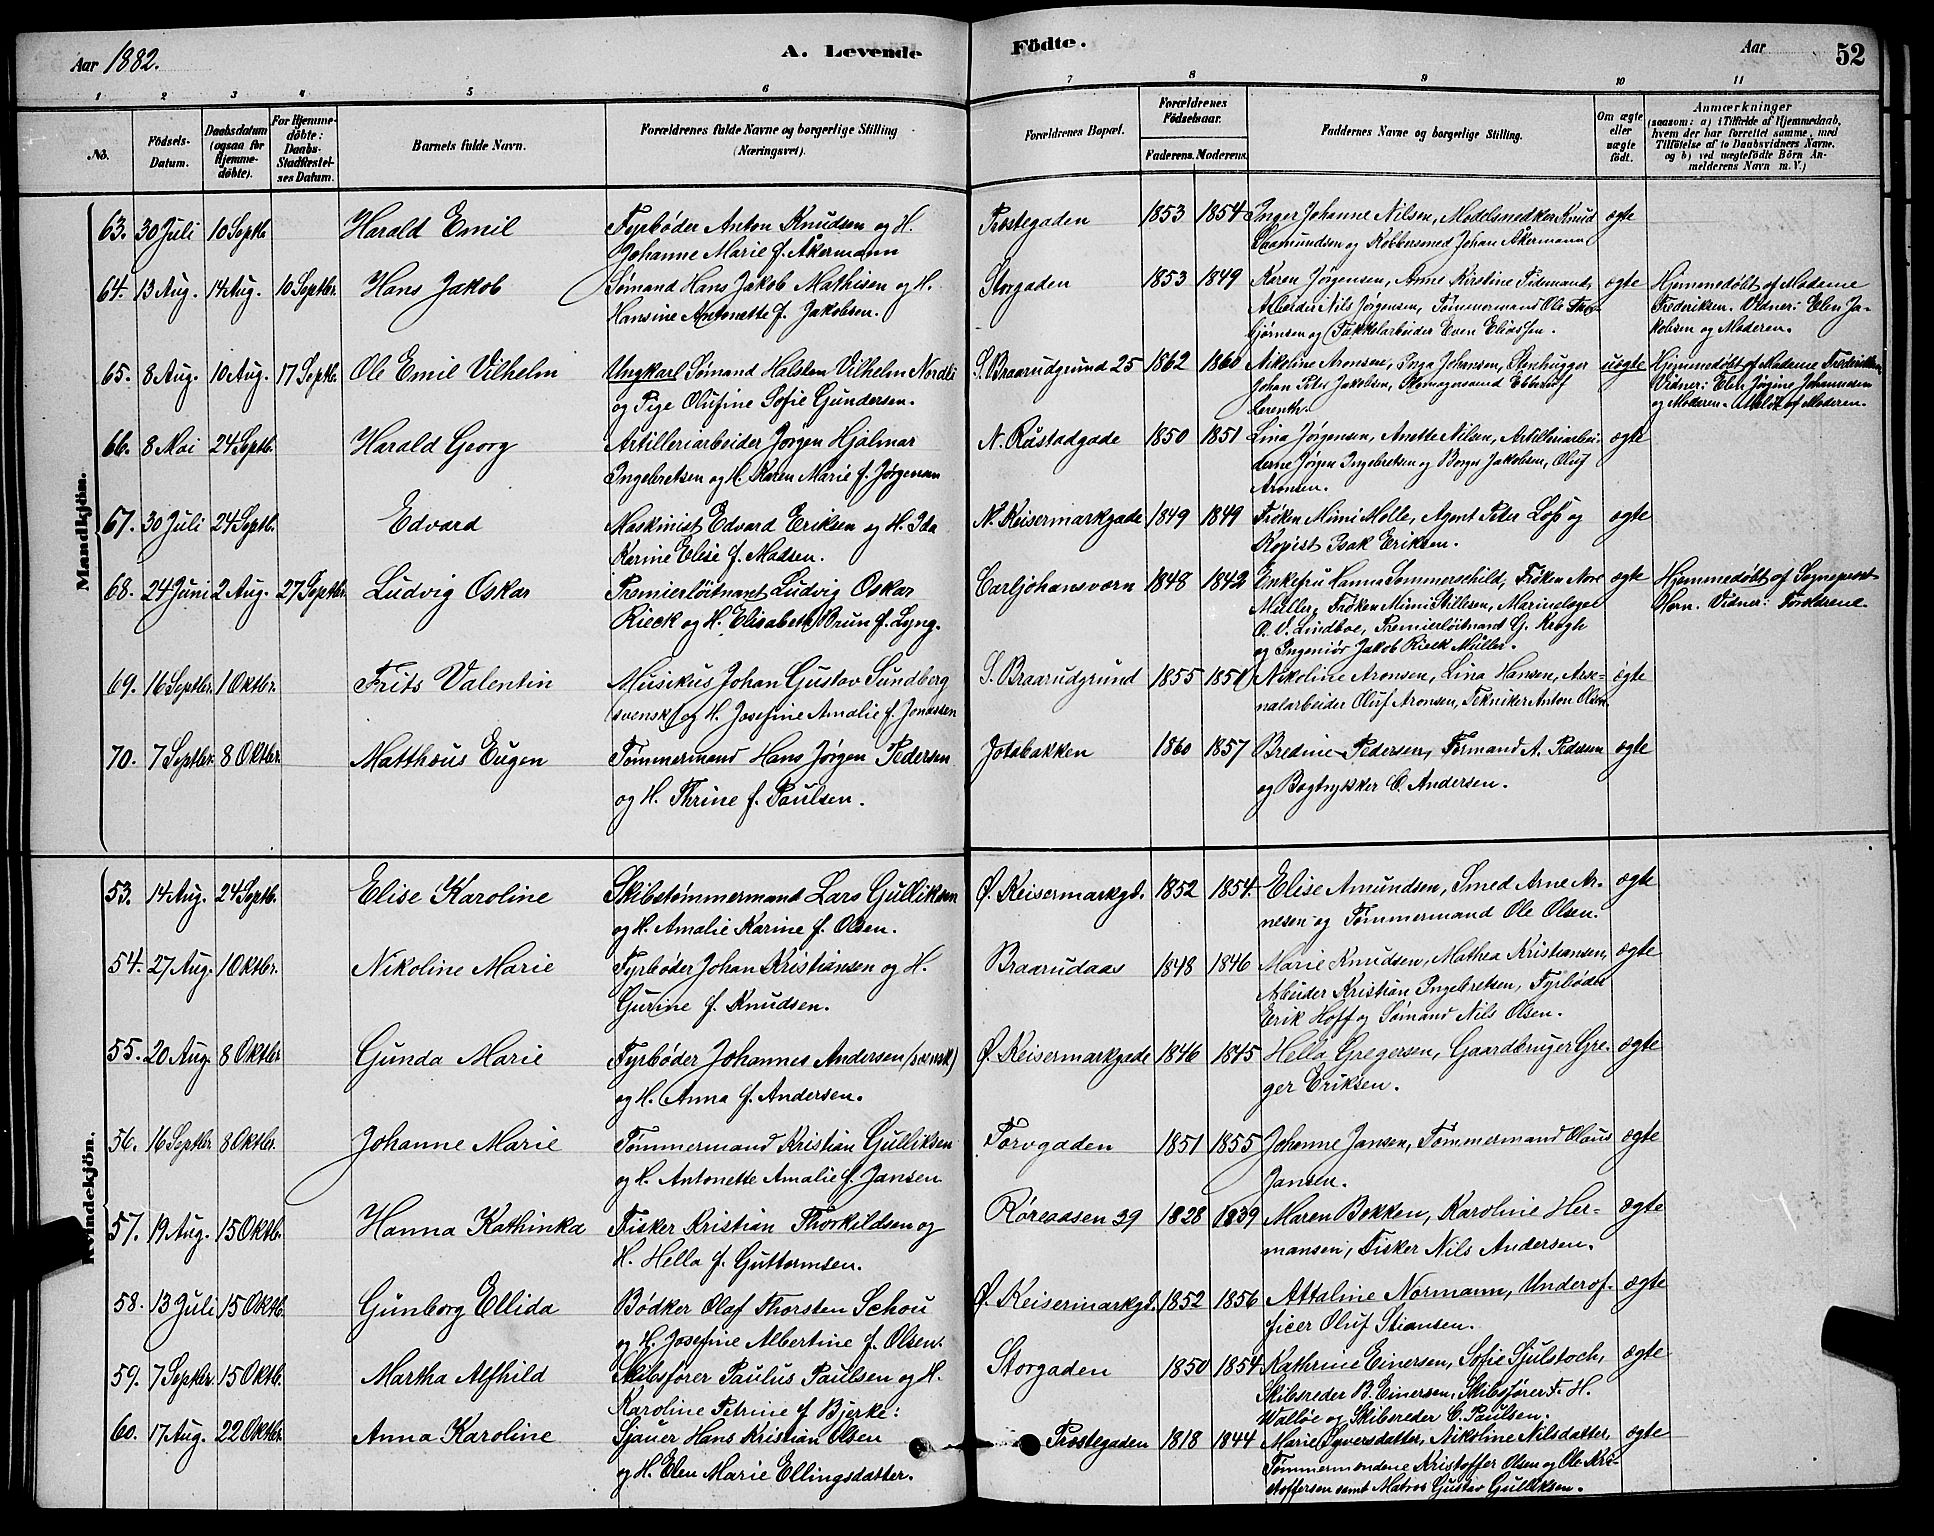 Aar 1882.
A. Levende
Födte.
Aar
52
1 2 3 4 5 6 7 8 9 10 11
No.
Födsels-Datum.
Daabsdatum (ogsaa for Hjemmedöbte).
For Hjemmedöbte: Daabs-Stadfæstelses Datum.
Barnets fulde Navn.
Forældrenes fulde Navne og borgerlige Stilling (Næringsvei).
Forældrenes Bopæl.
Forældrenes Födselsaar.
Faderens. Moderens.
Faddernes Navne og borgerlige Stilling.
Om ægte eller uægte födt.
Anmærkninger
(saasom: a) i Tilfælde af Hjemmedaab, hvem der har forrettet samme, med Tilföielse af to Daabsvidners Navne, og b) ved uægtefödte Börn Anmelderens Navn m. V.)
Mandkjön.
63. 30 Juli 10 Septb. Harald Emil Fyrbøder Anton Knudsen og H. Prostegaden 1853 1854 Inger Johanne Nilsen, Modelsnedker Knud ægte
Johanne Marie f. Åkermann Saamundsen og Kobbersmed Johan Åkermann
64. 13 Aug. 14 Aug. 10 Septbr. Hans Jakob Sømand Hans Jakob Mathisen og H. Storgaden 1853 1849 Karen Jørgensen, Anne Kirstine Tidemand, ægte Hjemmedøbt af Maderne
Hansine Antonette f. Jakobsen. Arbeider Nils Jørgensen, Tømmermand Ole Fredriksen. Vidner: Elen Ja-
og Takkelarbeider Even Eliassen. kobsen og Moderen.
65. 8 Aug. 10 Aug. 17 Septb. Ole Emil Vilhelm Ungkarl Sømand Halsten Vilhelm Nordli S. Braarudgrund 25 1862 1860 Nikoline Aronsen, Inga Johansen, Stenhugger uægte Hjemmedøbt af
og Pige Olufine Sofie Gundersen. Johan Peter Jakobsen, Vidner: Elen Jørgine Johannesen
og Moderen. Anmeldt af Moderen.
66. 8 Mai 24 Septb. Harald Georg Artilleriarbeider Jørgen Hjalmar N. Råstadgade 1850 1851 Lina Jørgensen, Anette Nilsen, Artilleriarbei- ægte
Ingebretsen og H. Karen Marie f. Jørgensen derne Jørgen Ingebretsen og Borger Jakobsen, Oluf
Aronsen.
67. 30 Juli 24 Septb. Edvard Maskinist Edvard Eriksen og H. Ida N. Keisermarkgade 1849 1849 Frøken Mimi Molle, Agent Peter Loss og ægte
Karine Elise f. Madsen. Kopist Isak Eriksen.
68. 24 Juni 2 Aug. 27 Septbr. Ludvig Oskar Premierløitnant Ludvig Oskar Carljohansværn 1848 1842 Enkefru Hanna Sommerschild, Frøken ægte Hjemmedøbt af Sogneprest
Rieck og H. Elisabeth Brun f. Lyng. Müller, Frøken Mimi Stillesen, Marinelæge Horn. Vidner: Forældrene.
O. V. Lindboe, Premierløitnant G. Krogh
og Ingeniør Jakob Rieck Müller.
69. 16 Septbr. 1 Oktbr. Frits Valentin Musikus Johan Gustav Sundberg S. Braarudgrund 1855 1851 Nikoline Aronsen, Lina Hansen, Arse- ægte
(svensk) og H. Josefine Amalie f. Jonassen nalarbeider Oluf Aronsen, Tekniker Anton Olsen
70. 7 Septbr. 8 Oktbr. Matthæus Eugen Tømmermand Hans Jørgen Pedersen Jotabakken 1860 1857 Bredine Pedersen, Formand A. Pedersen ægte
og H. Thrine f. Paulsen. og Bogtrykker C. Andersen.
Kvindekjön.
53. 14 Aug. 24 Septb. Elise Karoline Skibstømmermand Lars Gulliksen Ø. Keisermarkgd. 1852 1854 Elise Amundsen, Smed Arne Ar- ægte
og H. Amalie Karine f. Olsen. nesen og Tømmermand Ole Olsen.
54. 27 Aug. 1 Oktbr. Nikoline Marie Fyrbøder Johan Kristiansen og H. Braarudaas 1848 1846 Marie Knudsen, Mathea Kristiansen, ægte
Gurine f. Knudsen. Arbeider Kristian Ingebretsen, Fyrbøder
Erik Hoff og Sømand Nils Olsen.
55. 20 Aug. 8 Oktbr. Gunda Marie Fyrbøder Johannes Andersen (svensk) Ø. Keisermarkgade 1846 1845 Hella Gregersen, Gaardbruger Gre- ægte
og H. Anna f. Andersen. ger Eriksen.
56. 16 Septbr. 8 Oktbr. Johanne Marie Tømmermand Kristian Gulliksen Torvgaden 1851 1855 Johanne Jansen, Tømmermand Olaus ægte
og H. Antonette Amalie f. Jansen Jansen.
57. 19 Aug. 15 Oktb. Hanna Kathinka Fisker Kristian Thorkildsen og Røreaasen 39 1828 1839 Maren Bakken, Karoline Her- ægte
H. Hella f. Guttormsen. mansen, Fisker Nils Andersen.
58. 13 Juli 15 Oktb. Gunborg Ellida Bødker Olaf Thorsten Schou Ø. Keisermarkgd. 1852 1856 Attaline Normann, Underof- ægte
og H. Josefine Albertine f. Olsen. ficer Oluf Stiansen.
59. 7 Septbr. 15 Oktb. Martha Alfhild Skibsfører Paulus Paulsen og H. Storgaden 1850 1854 Kathrine Einersen, Sofie Sjulstoch, ægte
Karoline Petrine f. Bjerke. Skibsreder B. Einersen, Skibsfører F. H.
Walløe og Skibsreder C. Paulsen.
60. 17 Aug. 22 Oktbr. Anna Karoline Sjauer Hans Kristian Olsen Prostegaden 1818 1844 Marie Syversdatter, Nikoline Nilsdatter, ægte
og H. Elen Marie Ellingsdatter. Tømmermændene Kristoffer Olsen og Ole Kri-
stoffersen samt Matros Gustav Gulliksen.